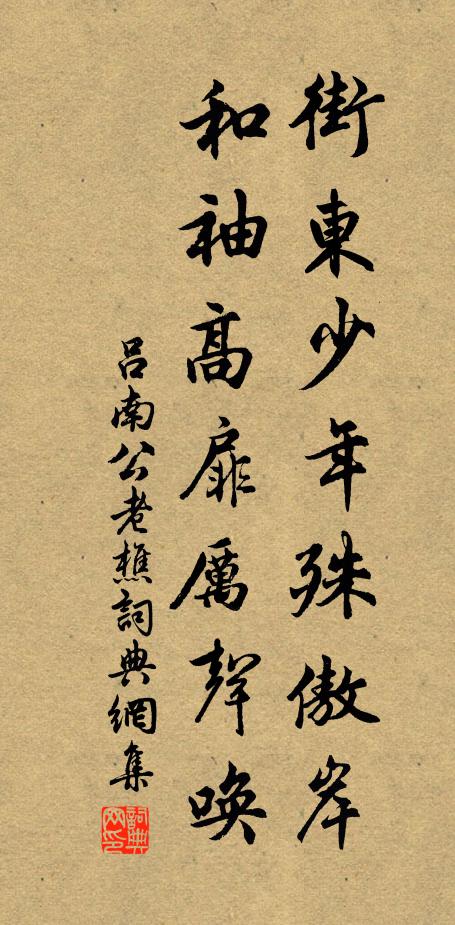 街東少年殊傲岸
和袖高扉厲聲喚
呂南公老樵詞典網集
詞典网印